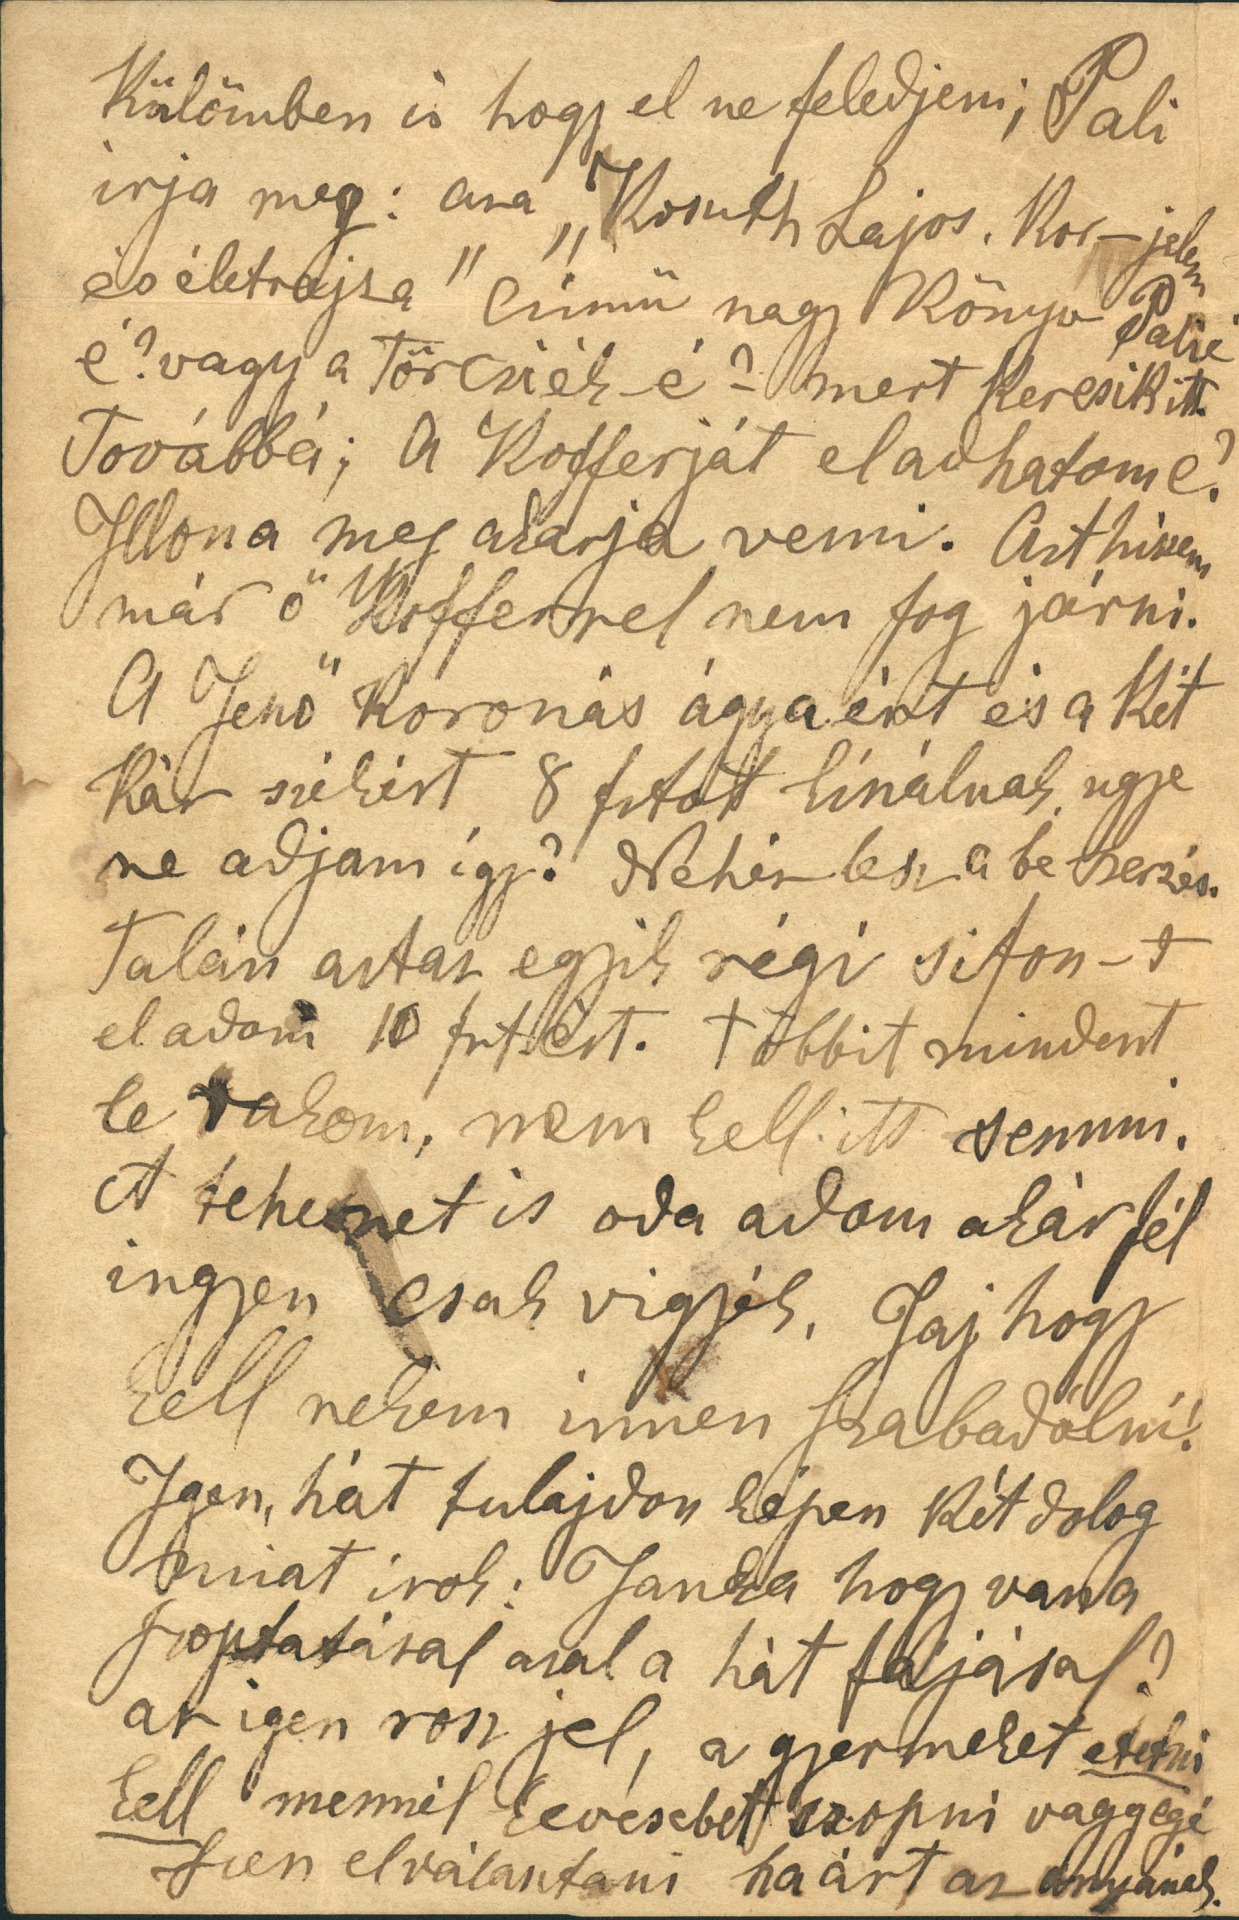 Külömben is hogy el ne feledjem; Pali
irja meg: aza „Kosuth Lajos. Kor-jelem
és életrajza" címü nagy Könyv Palié
é? vagy a Törcsiék-é? mert keresik itt.
Továbbá; A Kofferját eladhatom e?
Illona meg akarja venni. Azt hiszem
már ő Kofferrel nem fog járni.
A Jenő Koronás ágyaért és a két
kár székért 8 frtot kínálnak, ugye
ne adjam így? Nehéz lesz a be szerzés.
Talán aztaz egyik régi sifon-t
eladom 10 frt.ért. többit mindent
le rakom, nem kell itt semmi.
A tehenet is oda adom akár fél
ingyen csak vigyék. Jaj hogy
kell nekem innen szabadólni!
Igen, hát tulajdon képen két dolog
miat irok: Janka hogy van a
szoptatásal azal a hát fájásal?
az igen rosz jel, a gyermeket etetni
kell mennél kevesebet szopni vagy egé
szen elválasztani ha árt az anyának.